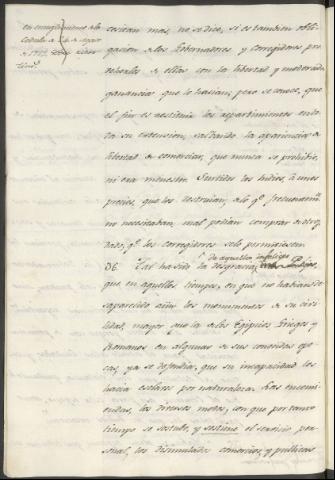 cesitan mas, no se dice, si es tambien obli-
gacion de los Gobernadores, y Corregidores pro-
veherles de ellas con la libertad y moderada
ganancia que lo hacian; pero se conoce, que
el fin es restituir los repartimientos en to-
da su extension, saltando la apariencia de
libertad de comerciar, que nunca se prohibió,
ni era menester. Surtidos los Indios, á unos
precios, que los destruian, de lo qe. frecuentemte.
no necesitaban, mal podian comprar de otro,
dado, qe. los corregidores selo permitiesen.
36. Tal ha sido la desgracia de aquellos infelices
que en aquellos tiempos, en que no habian de-
saparecido aún los monumentos de su civi-
lidad, mayor que la de los Egipcios, Griegos y
Romanos en algunas de sus conocidas epo-
cas, ya se defendia, que su incapacidad los
hacia esclavos por naturaleza. Las encomi-
endas, los diversos motes, con que por tanto
tiempo se sostubo, y sostiene el servicio per-
sonal, los disimulados comercios, y publicos